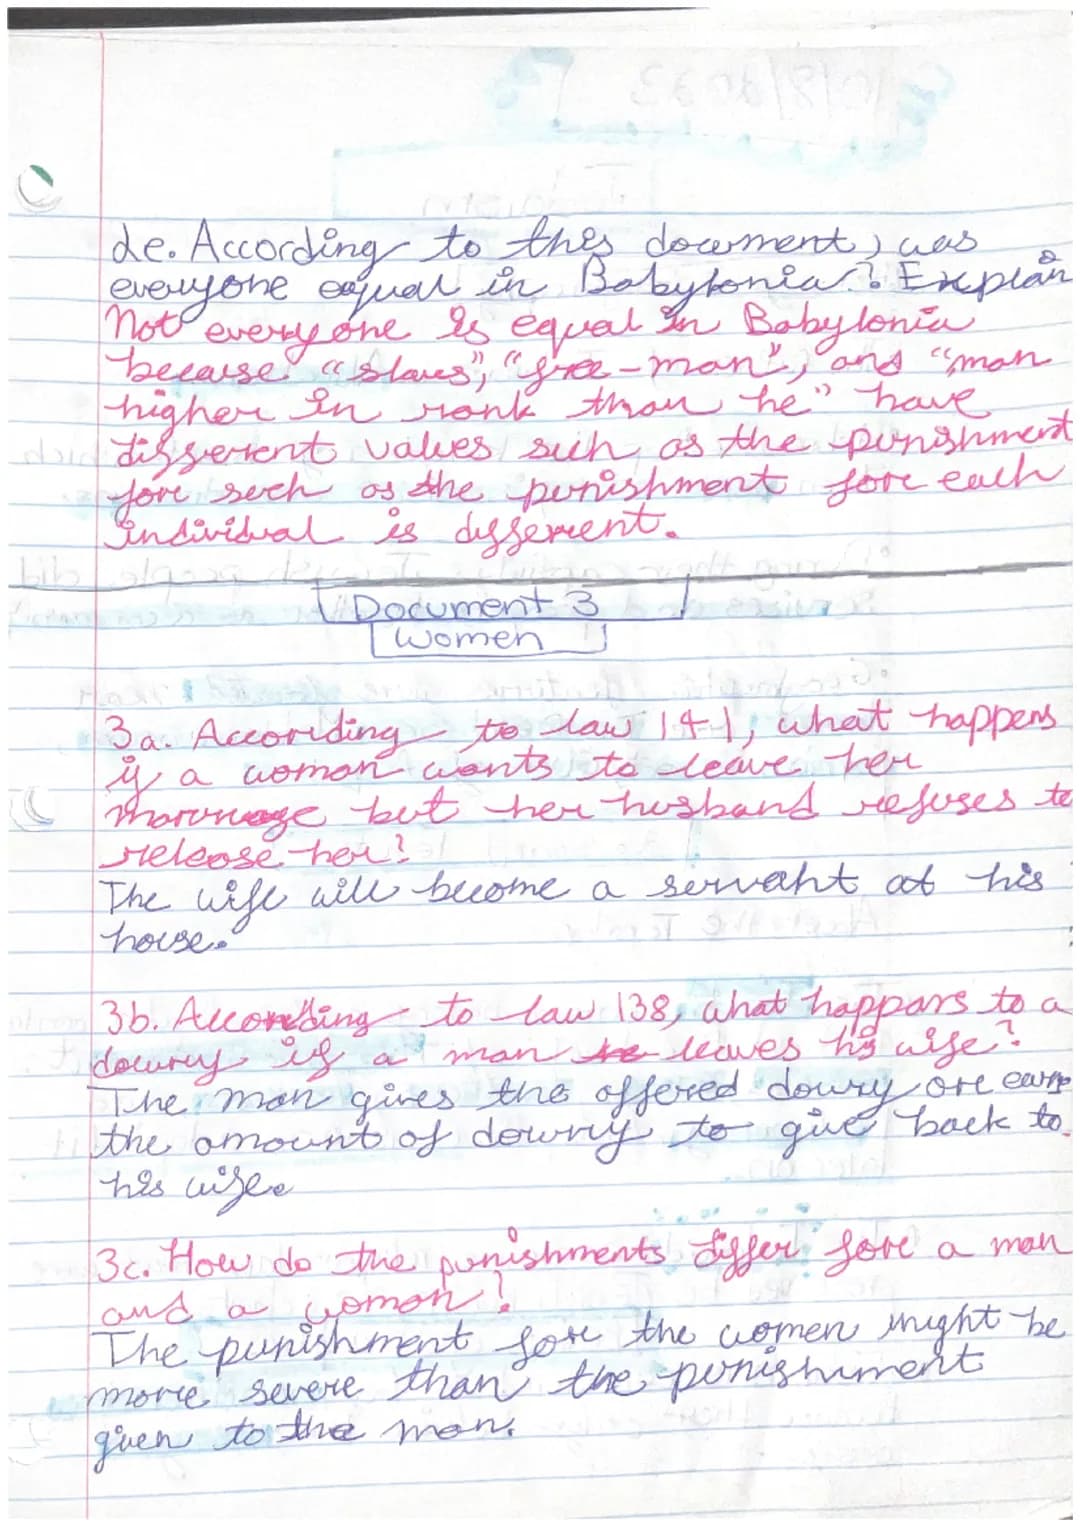 2e. According to this document, was
everyone equal in Babylonia? Explain
Not everyone is equal in Babylonia
because "slaves", "free-man", and "man
higher in rank than he" have
different values such as the punishment
fore such as the punishment fore each
individual is different.
Document 3
Women
3a. According to law 141, what happens
if a woman wants to leave her
marriage but her husband refuses to
release her?
The wife will become a servant at his
house.
3b. According to law 138, what happens to a
dowry if a man leaves his wife?
The man gives the offered dowry ore
the amount of dowry to give back to
his wife.
3c. How do the punishments differ fore a man
and a woman?
The punishment fore the women might be
more severe than the punishment
given to the man.